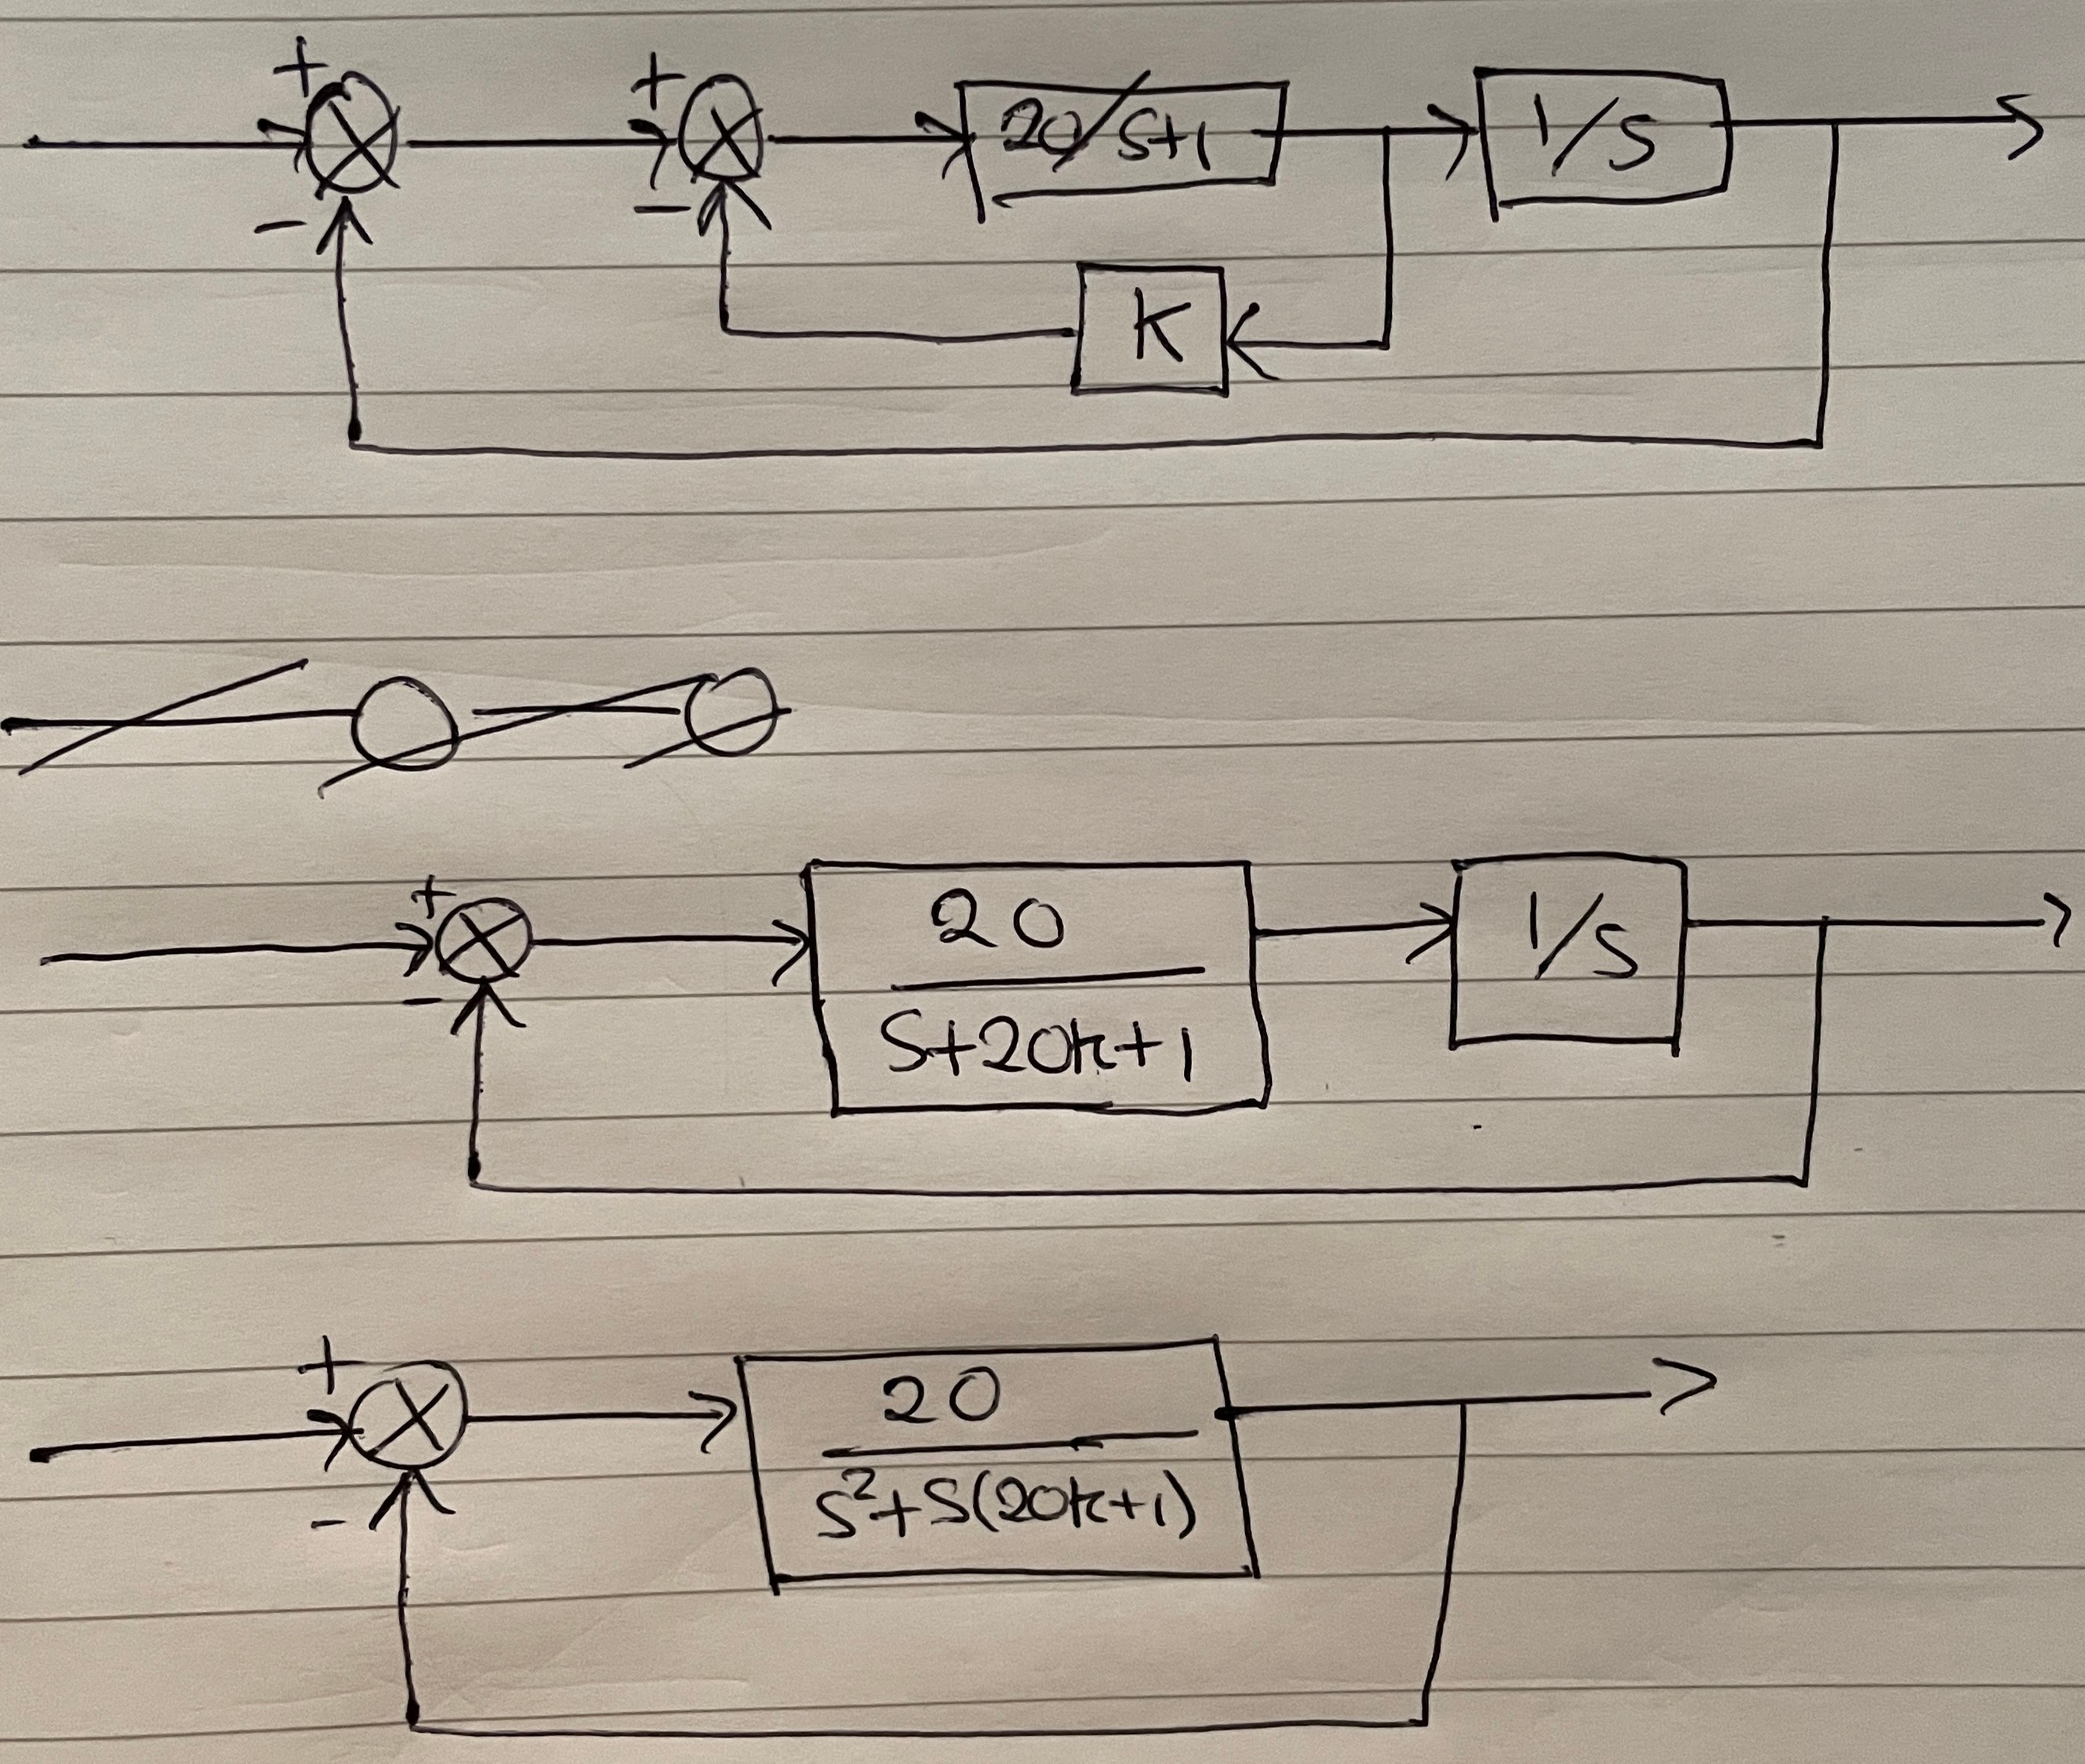 + + 20/S+1 1/S
- -
K
+ 20 1/S
- S+20K+1
+ 20
- S²+S(20K+1)